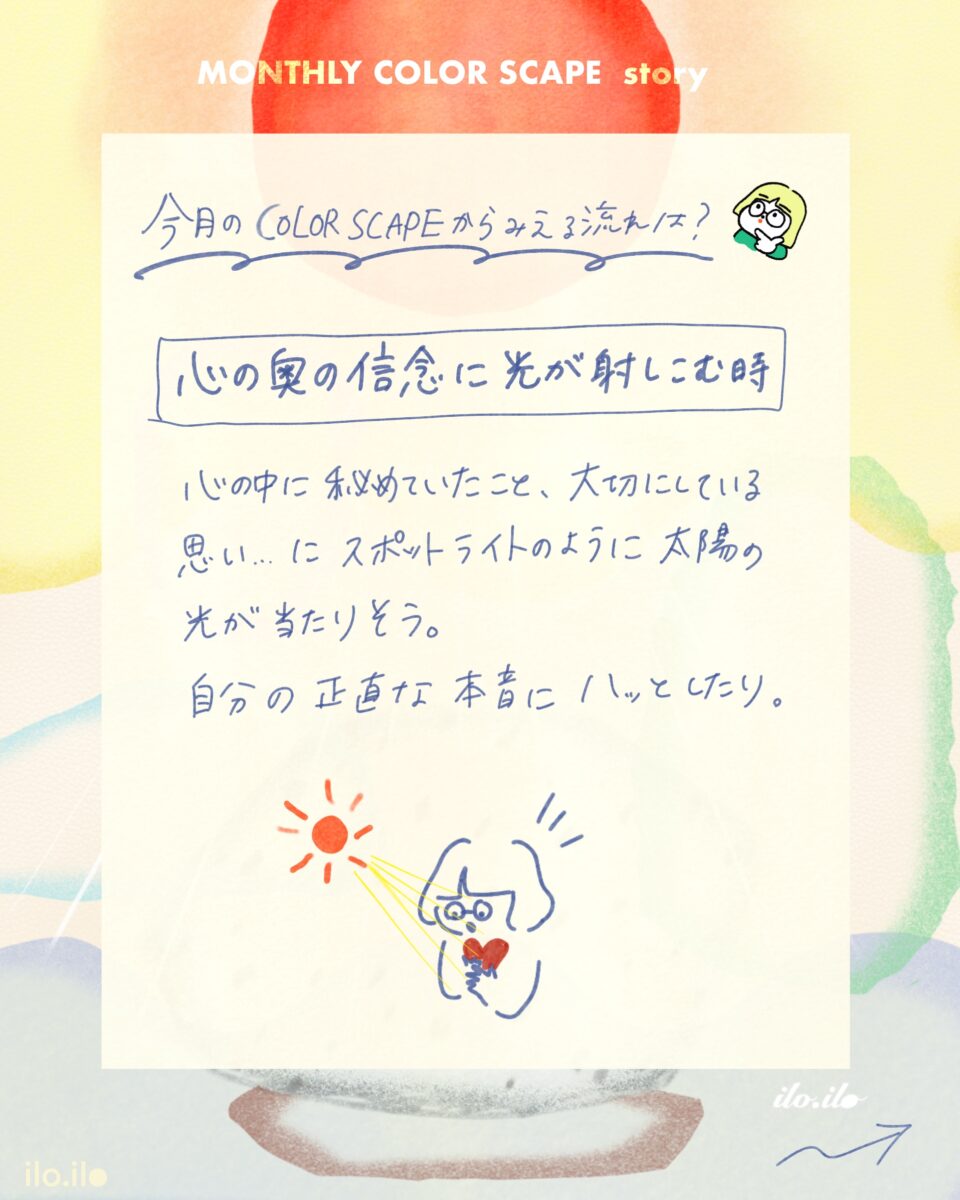 MONTHLY COLOR SCAPE story
今月の COLOR SCAPEからみえる流れは?
心の奥の信念に光が射しこむ時
心の中に秘めていたこと、大切にしている
思い…にスポットライトのように太陽の
光が当たりそう。
自分の正直な本音にハッとしたり。
ilo.ilo
ilo.ilo